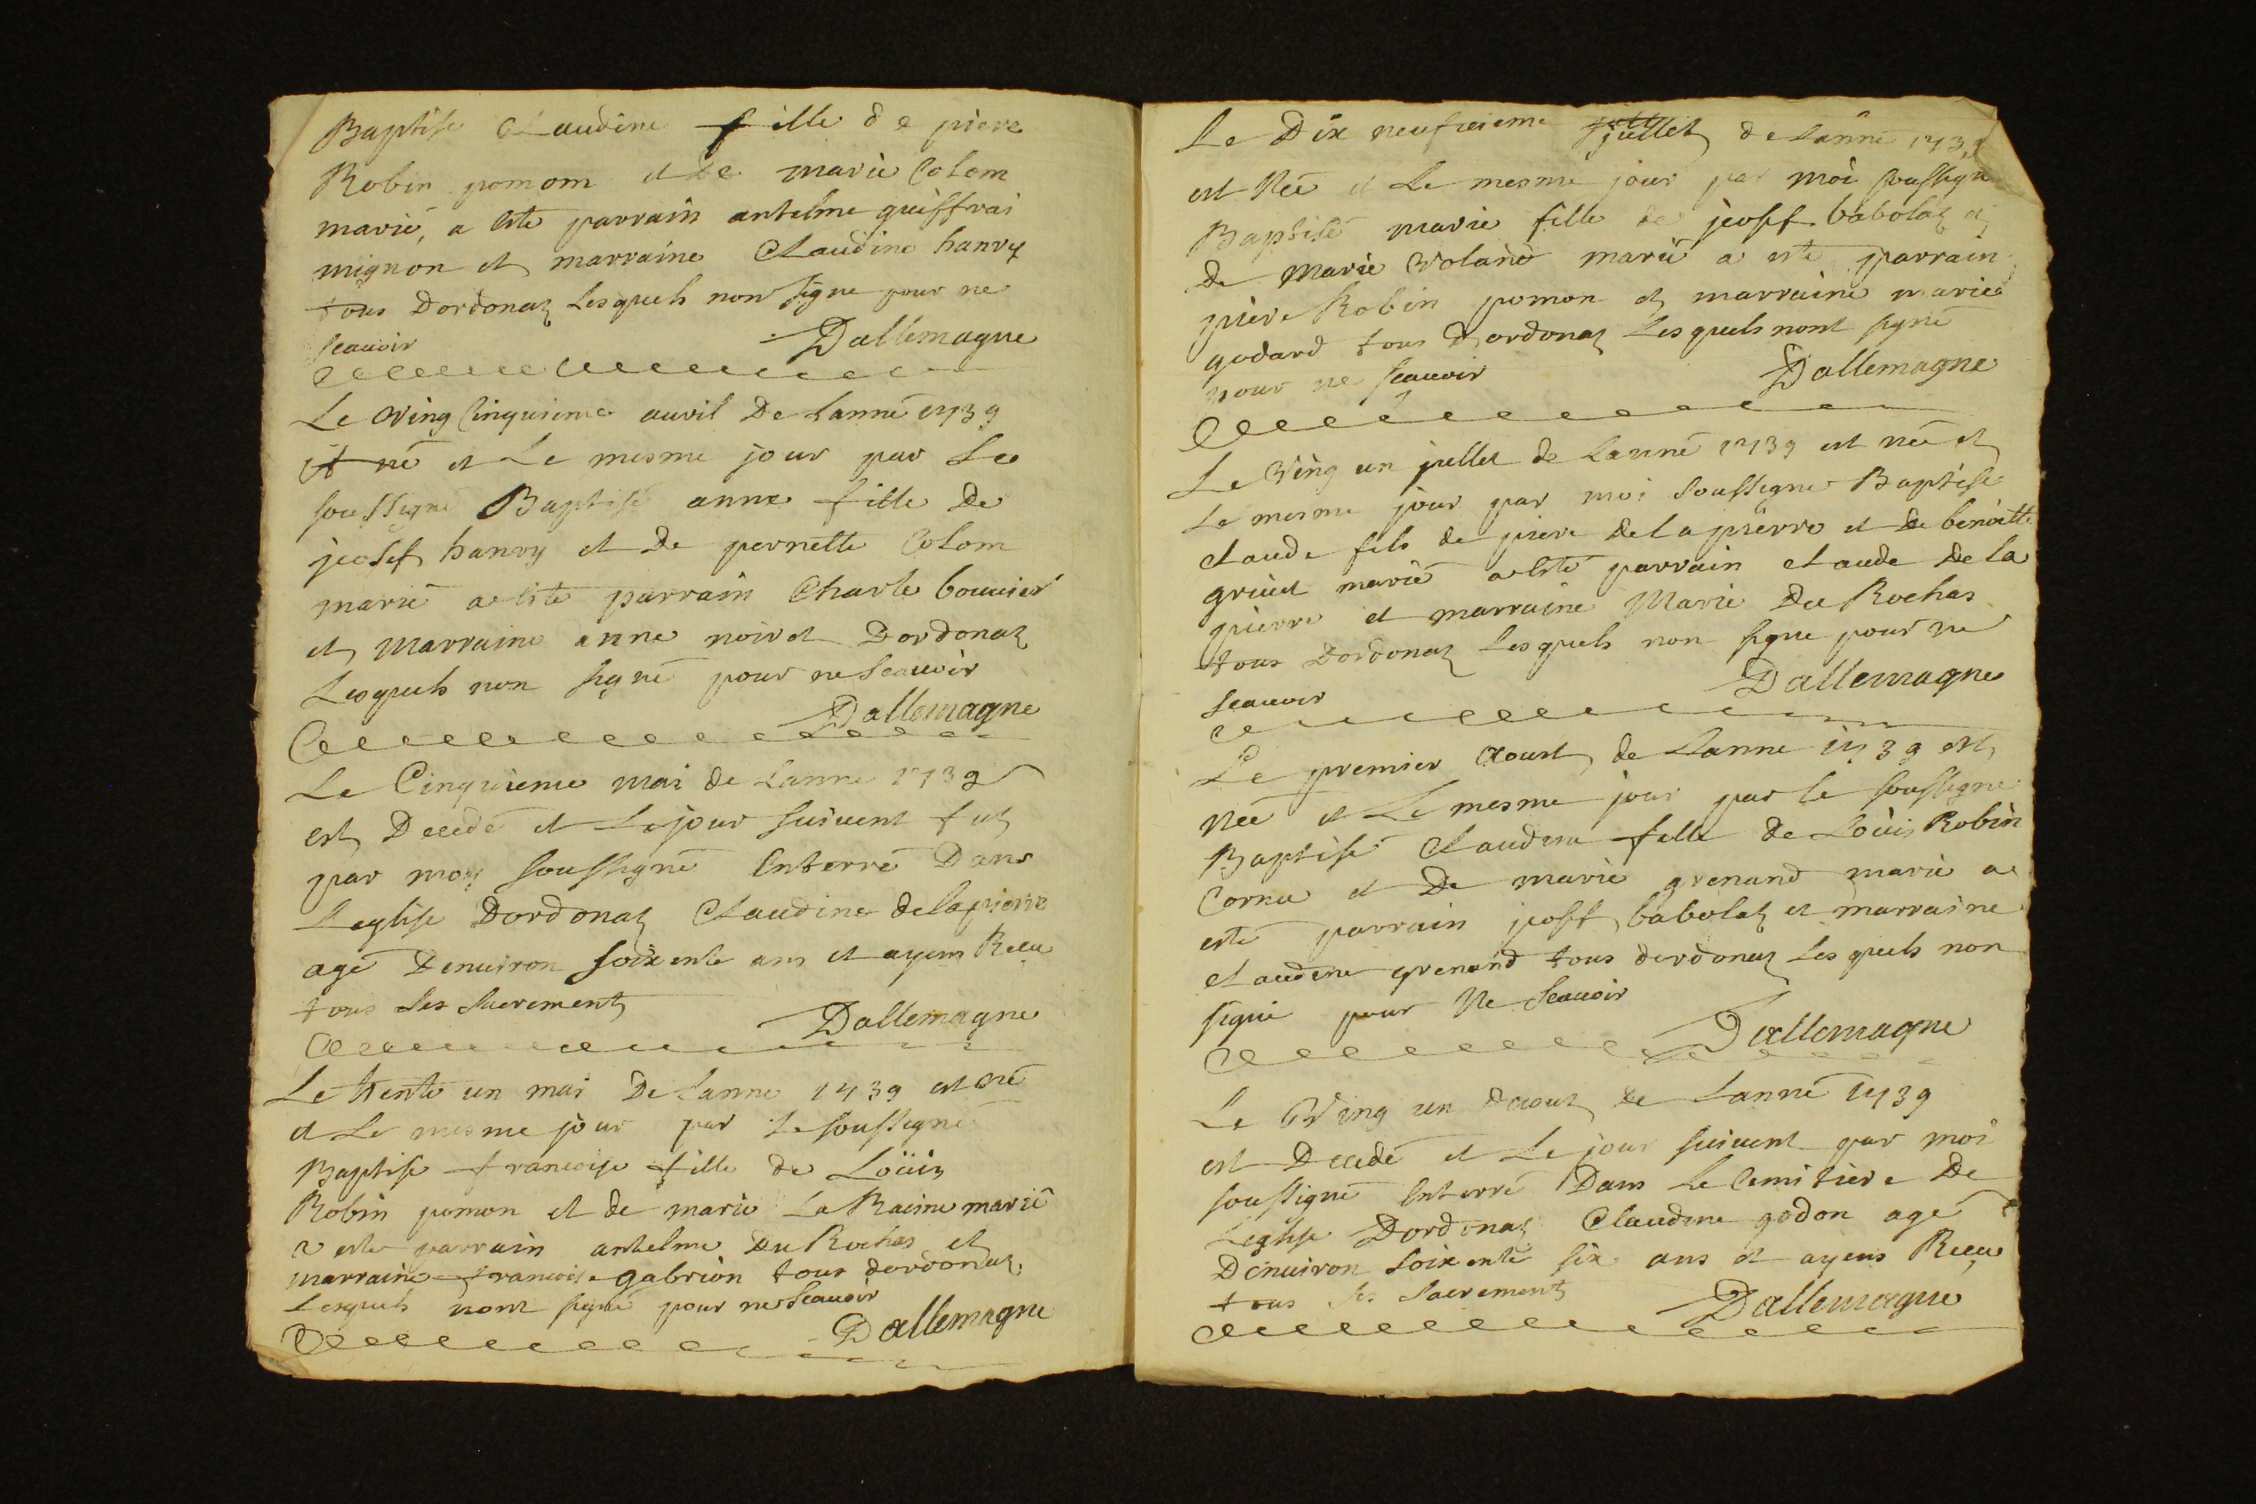 Baptise Claudine fille de piere
Robin pomom et de marie Colom
marié, a esté parrain antelme guiffrai
mignon et marraine Claudine hanry
tous Dordonaz Lesquels non signe pour ne
scauoir Dallemagne
Le Ving Cinquieme auvil De Lanné 1739
né et Le mesme jour par Le
soussigné Baptisé anne fille De
jeosef hanry et De pernette Colom
marié a esté parrain Charle bouuier
et Marraine anne noiret Dordonaz
Lesquels non signé pour ne Scauoir
Dallemagne
Le Cinquieme mai de Lanne 1739
est Decedé et Le jour suiuent fut
par moy soussigné Enterré Dans
Leglise Dordonaz Claudine delapierre
agé Denuiron soixente ans et ayens Recu
tous Ses Sacrements Dallemagne
Le trente un mai De Lanne 1739 est né
et Le mesme jour par Le soussigné
Baptise francoise fille de Loüis
Robin pomon et de marie La Racine marié
a esté parrain antelme Du Rochas et
marraine francoise gabrion tous dordonaz
Lesquels nont signé pour ne Scauoir
Dallemagne
Le Dix neufieieme juillet de Lanné 1739
est Née et Le mesme jour par moi soussigne
Baptisé marie fille de jeoseff babolaz et
de Marie Voland marié a esté parrain
piere Robin pomon et marraine marie
godard tous Dordonaz Lesquels nont signé
pour ne scauoir Dallemagne
Le Ving un juillet de Lanné 1739 est née et
Le mesme jour par moi Soussigne Baptise
Claude fils de piere Delapierre et De benoitte
marié a esté parrain Claude De la
pierre et marraine Marie Du Rochas
tous Dordonaz Lesquels non signe pour ne
scauoir Dallemagne
Le premier Aoust de Lanne 1739 est
Née et Le mesme jour par le soussigne
Baptisé Claudine fille de Loüis Robin
Cornu et De marie grenand marié a
esté parrain jeoseff babolaz et marraine
Claudine grenand tous dordonaz Lesquels non
signé pour Ne Scauoir
Dallemagne
Le Ving un daoust de Lanné 1739
est Decedé et Le jour suiuent par moi
soussigné Enterré Dans Le Cemitiere De
Leglise Dordonaz Claudine godon agé
Denuiron Soixente six ans et ayens Recu
tous Ses Sacrements Dallemagne